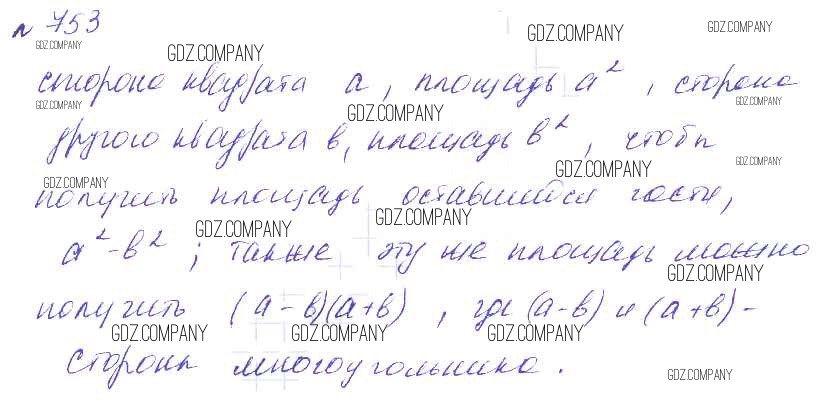 № 753
GDZ.COMPANY GDZ.COMPANY GDZ.COMPANY GDZ.COMPANY
сторона квадрата a, площадь a², сторона
GDZ.COMPANY GDZ.COMPANY GDZ.COMPANY
другого квадрата в, площадь в², чтобы
GDZ.COMPANY GDZ.COMPANY GDZ.COMPANY
получить площадь оставшейся части,
GDZ.COMPANY GDZ.COMPANY
a²-в²; также эту же площадь можно
GDZ.COMPANY
получить (a-в)(a+в), где (a-в) и (a+в)-
GDZ.COMPANY GDZ.COMPANY GDZ.COMPANY
стороны многоугольника.
GDZ.COMPANY